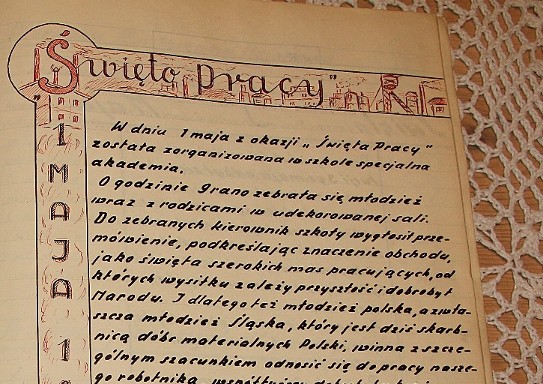 "Święto Pracy" R
1 MAJA 19
W dniu 1 maja z okazji „Święta Pracy"
została zorganizowana w szkole specjalna
akademia.
O godzinie 9 rano zebrała się młodzież
wraz z rodzicami w udekorowanej sali.
Do zebranych kierownik szkoły wygłosił prze-
mówienie, podkreślając znaczenie obchodu,
jako święta szerokich mas pracujących, od
których wysiłku zależy przyszłość i dobrobyt
Narodu. I dlatego też młodzież polska, a zwła-
szcza młodzież Śląska, który jest dziś skarb-
nicą dóbr materialnych Polski, winna z szcze-
gólnym szacunkiem odnosić się do pracy nasze-
go robotnika,